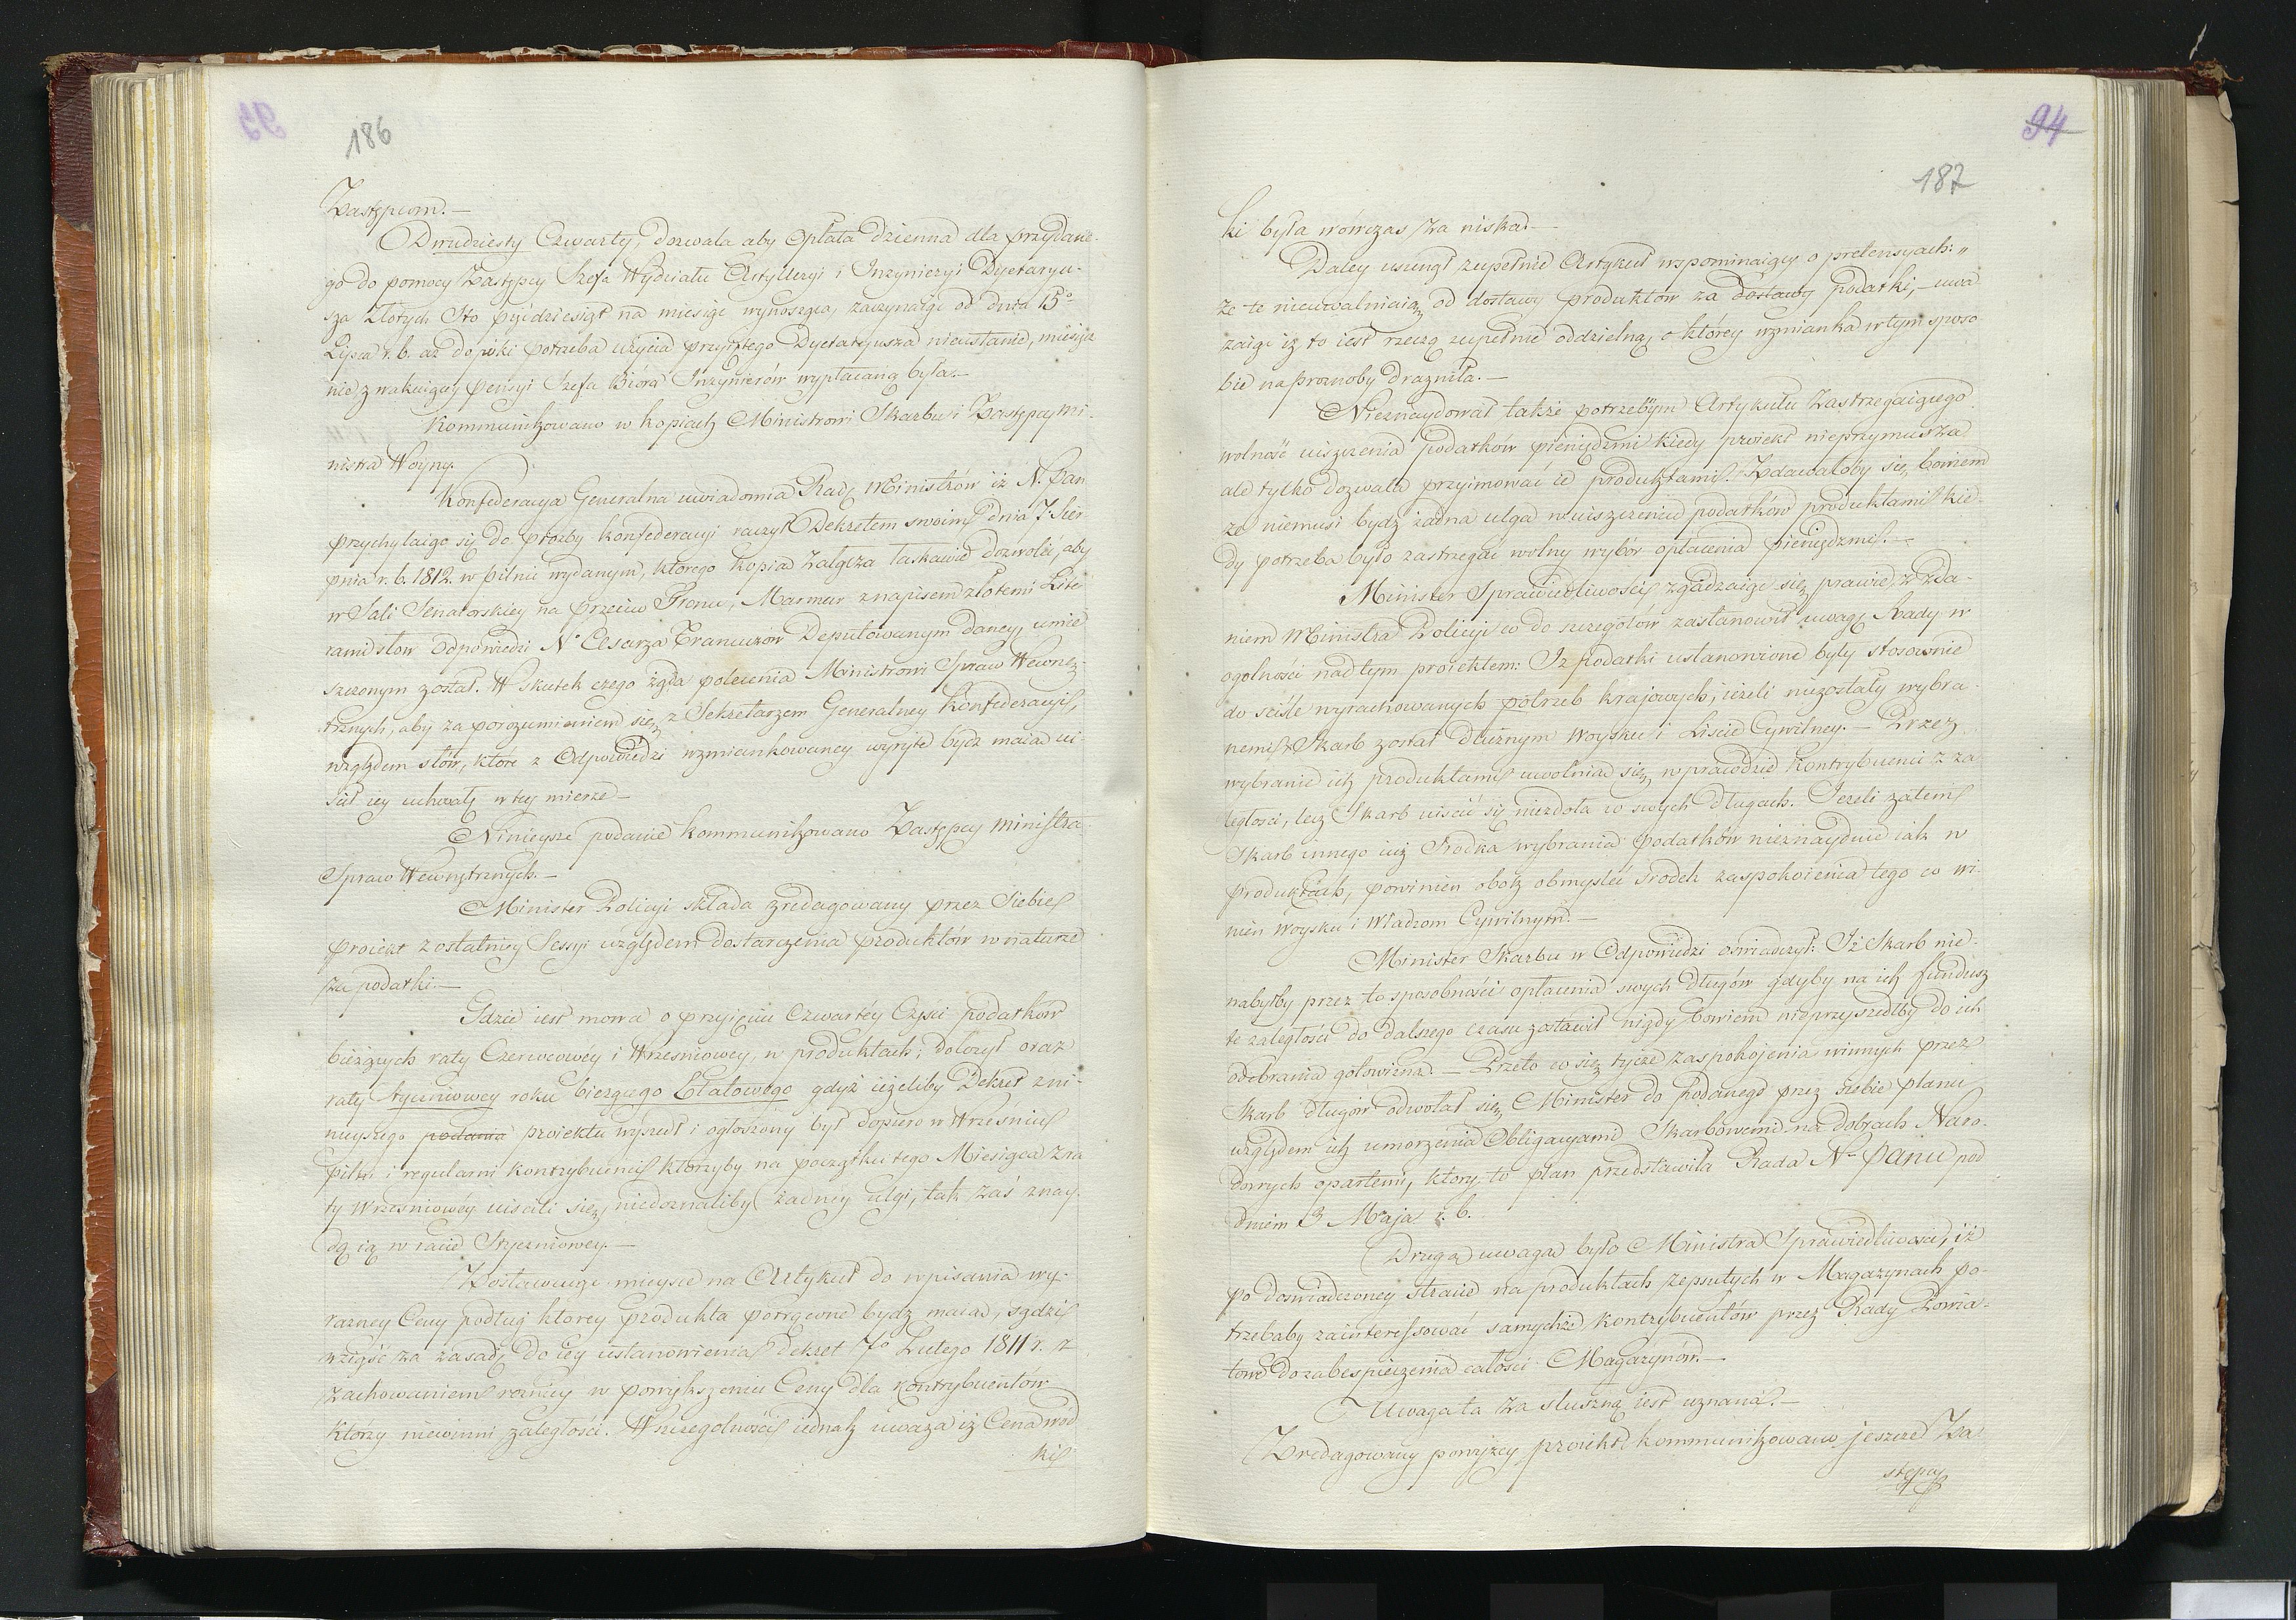 186
Zastępcom.—
Dwudziesty Czwarty, dozwala aby Opłata dzienna dla przydane-
go do pomocy Zastępcy Szefa Wydziału Artylleryi i Inzynieryi Dyetaryu-
sza Złotych Sto pięćdziesiąt na miesiąc wynosząca, zaczynaiąc od dnia 15°
Lipca r. b. az dopóki potrzeba użycia przyiętego Dyetaryusza nieustanie, miesięcz
nie z wakuiącey pensyi Szefa Bióra Inzynierów wypłacaną była.—
Kommunikowano w kopiach Ministrowi Skarbu i Zastępcy Mi-
nistra Woyny.
Konfederacya Generalna uwiadomia Radę Ministrów iż N. Pan
przychylaiąc się do prozby konfederacyi raczył Dekretem swoim dnia 7. Sier
pnia r. b. 1812. w Pilnic wydanym, ktorego kopia załącza łaskawie dozwolić, aby
w Sali Senatorskiey na przeciw Tronu, Marmur z napisem złotemi Lite
rami słow Odpowiedzi N° Cesarza Francuzów Deputowanym daney, umie
szczonym został. W skutek czego żąda polecenia Ministrowi Spraw Wewnęz
trznych, aby za porozumieniem się z Sekretarzem Generalney Konfederacyi,
względem słów, które z Odpowiedzi wzmiankowaney wyryte bydz maią ui
ścił iey uchwałę w tey mierze—
Ninieysze podanie kommunikowano Zastępcy Ministra
Spraw Wewnętrznych.—
Minister Policyi składa zredagowany przez Siebie
proiekt z ostatniey Sessyi względem dostarczenia produktów w naturze
za podatki.—
Gdzie iest mowa o przyięciu Czwartéy Części podatków
bieżących raty Czerwcowéy i Wrzesniowey, w produktach; dołożył oraz
raty Styczniowey roku bieżącego Etatowego gdyż ieżeliby Dekret zni-
nieyszego podania proiektu wyszedł i ogłoszony był dopiero w Wrześniu
pilni i regularni kontrybuenci ktorzyby na początku tego Miesiąca z ra
ty Wrzesniowéy uiścili się niedoznaliby żadnéy ulgi, tak zaś znay-
dą ią w racie Styczniowey.—
Zostawuiąc mieysce na Artykuł do wpisania wy-
razney Ceny podług ktorey produkta potrącone bydz maią, sądzi
wziąść za zasadę do iey ustanowienia Dekret 7° Lutego 1811 r. z
zachowaniem rożnicy w powiększeniu Ceny dla kontrybuentów
którzy niewinni zaległości. W szczegolności iednak uważa iż Cena wód
ki
94
187
ki była wówczas za niska.—
Daley usunął zupełnie Artykuł wspominaiący o pretensyach: "
że te nieuwalniaią od dostawy produktów za dostawy podatki,— uwa
zaiąc iż to iest rzeczą zupełnie oddzielną, o którey wzmianka w tym sposo
bie na proznoby drazniła.—
Nieznaydował także potrzebnym Artykułu zastrzegaiącego
wolność uiszczenia podatków pieniędzmi kiedy proiekt nieprzymusza
ale tylko dozwala przyimować ie produktami. Zdawałoby się bowiem
ze niemusi bydz żadna ulga w uiszczeniu podatków produktami kie-
dy potrzeba było zastrzegać wolny wybór opłacenia pieniędzmi.—
Minister Sprawiedliwości zgadzaiąc się prawie z zda-
niem Ministra Policyi co do szczegółów zastanowił uwagę Rady w
ogolności nad tym proiektem: Iz podatki ustanowione były stosownie
do ściśle wyrachowanych potrzeb krajowych, ieżeli niezostały wybra-
nemi, Skarb został dłużnym woysku i Liscie Cywilney.— Przez
wybranie ich produktami uwolnia się w prawdzie kontrybuenci z za
ległości, lecz Skarb uiścić się niezdoła w swych długach. Jeżeli zatem
Skarb innego iuż Srodka wybrania podatków nieznayduie iak w
produktach, powinien obok obmysleć srodek zaspokoienia tego co wi-
nien woysku i Władzom Cywilnym.—
Minister Skarbu w Odpowiedzi oświadczył: Iż Skarb nie-
nabyłby przez to sposobności opłacenia swych długów gdyby na ich fundusz
te zaległości do dalszego czasu zostawił nigdy bowiem nieprzyszedłby do ich
odebrania gotowizną.— Przeto co się tycze zaspokojenia winnych przez
Skarb długów odwołał się Minister do Podanego przez siebie planu
względem ich umorzenia Obligacyami Skarbowemi na dobrach Naro-
dowych opartemi, ktory to plan przedstawiła Rada N. Panu pod
dniem 3 Maja r. b.
Drugą uwagą było Ministra Sprawiedliwości, iż
po doswiadczoney stracie na produktach zepsutych w Magazynach po-
trzebaby zainteressować samychże kontrybuentów przez Rady Powia-
towe do zabespieczenia całości Magazynów.—
Uwaga ta za słuszną iest uznana.—
Zredagowany powyżey proiekt kommunikowano jeszcze Za
stępcy